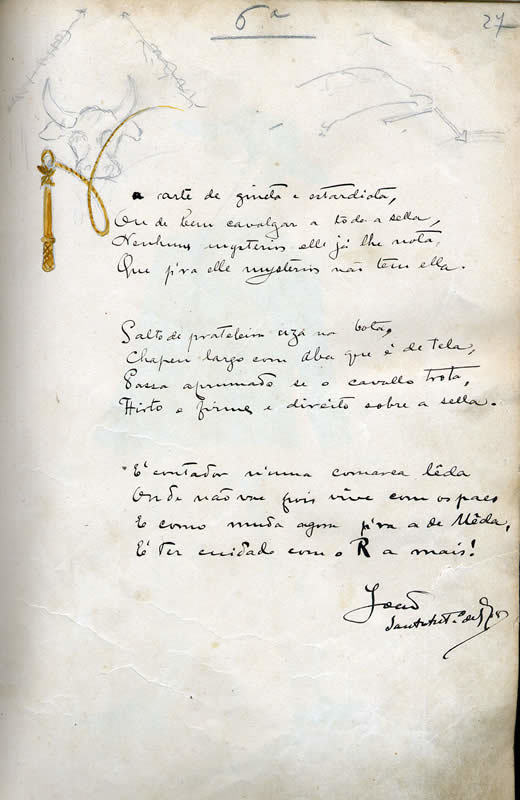 6ª
27
a arte de gineta e estardiota,
Ou de bem cavalgar a toda a sella,
Nenhuns mysterios elle já lhe nota,
Que p'ra elle mysterios não tem ella.
Salto de prateleira uza na bota,
Chapeu largo com aba que é de tela,
Passa aprumado se o cavallo trota,
Hirto e firme e direito sobre a sella.
E' contador n'uma comarca lêda
Onde não vae pois vive com os paes
E como muda agora p'ra a de Mêda,
E' ter cuidado com o R a mais!
João